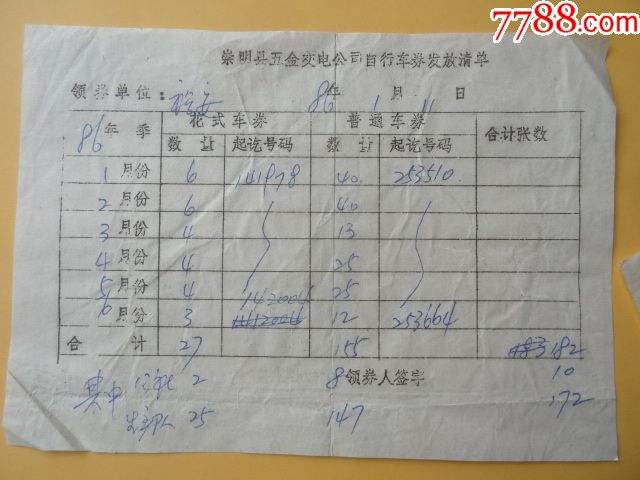 7788.com
崇明县五金交电公司自行车券发放清单
领券单位： 86年 1月 11日
86年 季 花式车券 普通车券 合计张数
数量 起讫号码 数量 起讫号码
1 月份 6 141978 40 253510
2 月份 6 40
3 月份 4 13
4 月份 4 25
5 月份 4 142004 25
6 月份 3 12 253664
合计 27 155 182
其中 2 8 领券人签字 10
25 147 172